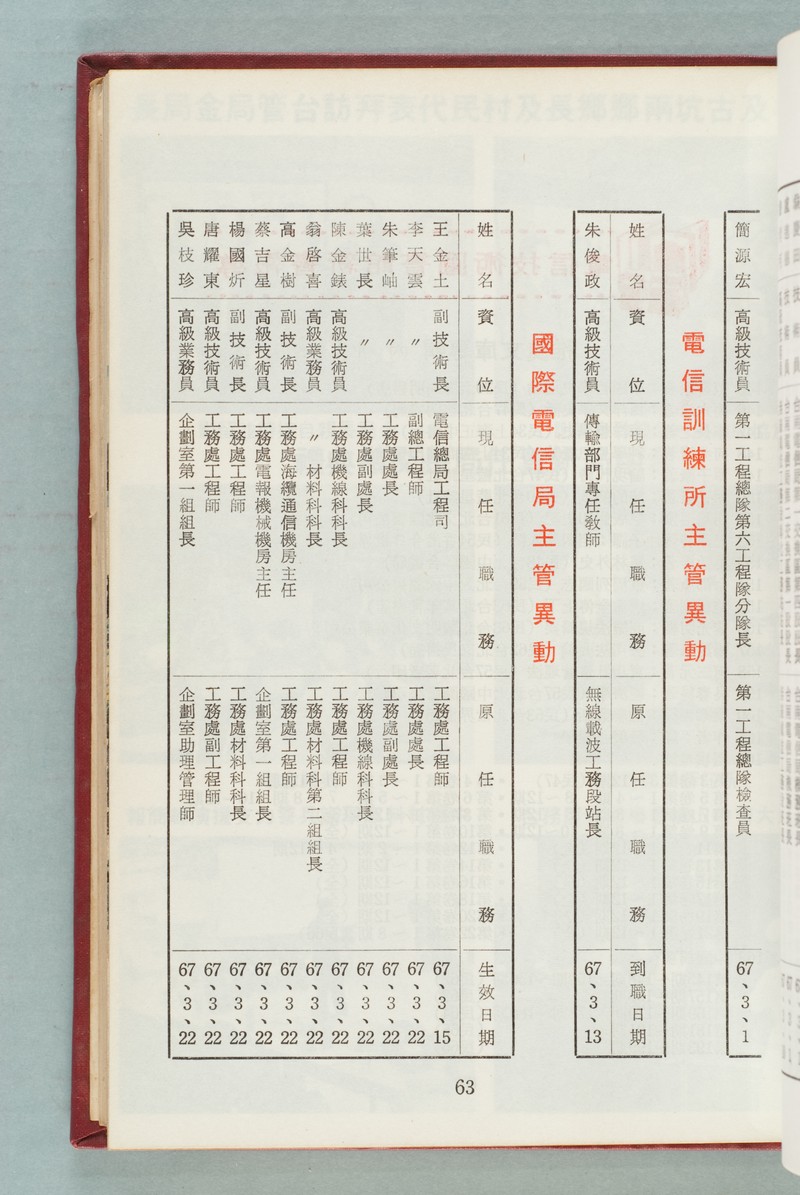 簡源宏 高級技術員 第一工程總隊第六工程隊分隊長 第一工程總隊檢查員 67、3、1
電信訓練所主管異動
姓名 資位 現任職務 原任職務 到職日期
朱俊政 高級技術員 傳輸部門專任教師 無線載波工務段站長 67、3、13
國際電信局主管異動
姓名 資位 現任職務 原任職務 生效日期
王金土 副技術長 電信總局工程司 工務處工程師 67、3、15
李天雲 〃 副總工程師 工務處處長 67、3、22
朱筆岫 〃 工務處處長 工務處副處長 67、3、22
葉世長 〃 工務處副處長 工務處機線科科長 67、3、22
陳金錶 高級技術員 工務處機線科科長 工務處工程師 67、3、22
翁啓喜 高級業務員 〃 材料科科長 工務處材料科第二組組長 67、3、22
高金樹 副技術長 工務處海纜通信機房主任 工務處工程師 67、3、22
蔡吉星 高級技術員 工務處電報機械機房主任 企劃室第一組組長 67、3、22
楊國炘 副技術長 工務處工程師 工務處材料科科長 67、3、22
唐耀東 高級技術員 工務處工程師 工務處副工程師 67、3、22
吳枝珍 高級業務員 企劃室第一組組長 企劃室助理管理師 67、3、22
63